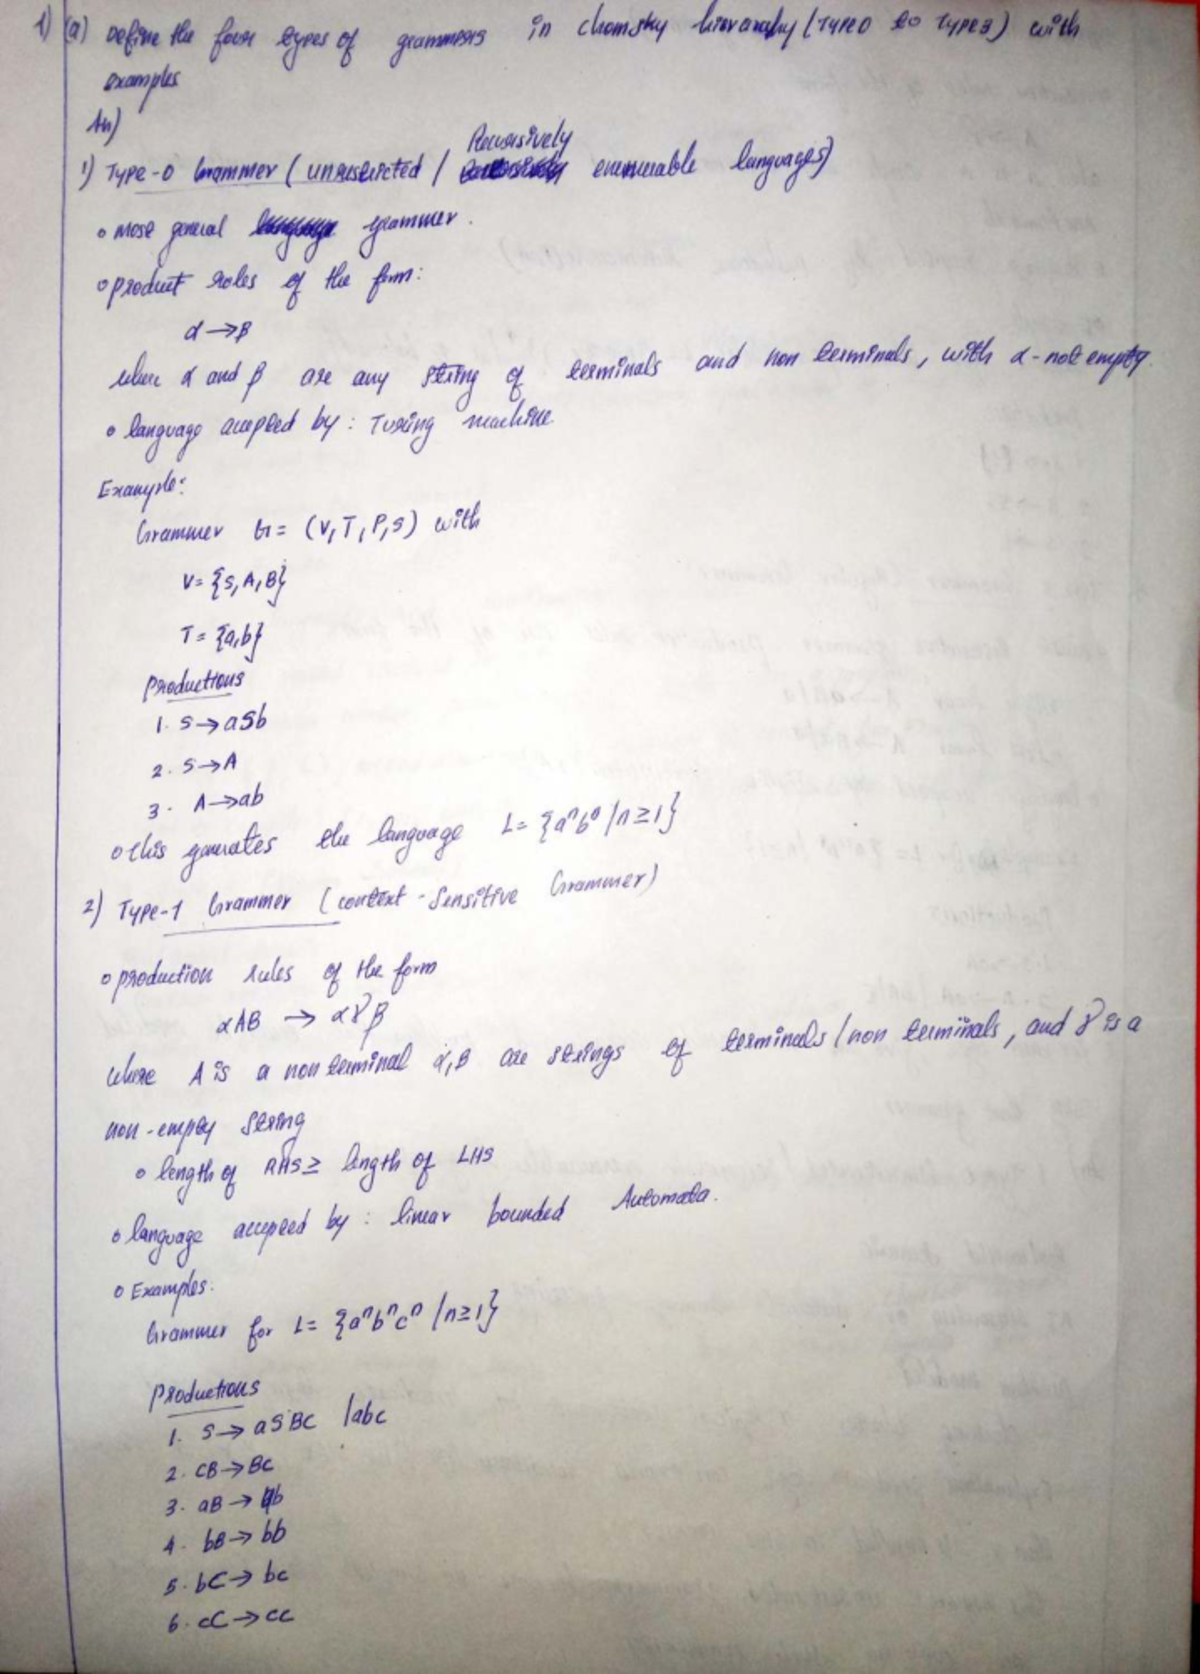 1) (a) Define the four types of grammers in chomsky hierarachy (TYPE0 to TYPE3) with
examples
An)
1) Type-0 Grammer (unrestricted / Recursively enumerable languages)
o most general grammer.
o product roles of the form:
α → β
where α and β are any string of terminals and non terminals, with α-not empty.
o language accepted by: Turing machine.
Example:
Grammer G = (V, T, P, S) with
V = {S, A, B}
T = {a, b}
productions
1. S → aSb
2. S → A
3. A → ab
o this generates the language L = {aⁿbⁿ / n ≥ 1}
2) Type-1 Grammer (context-Sensitive Grammer)
o production rules of the form
αAB → αγβ
where A is a non terminal α, B are strings of terminals/non terminals, and γ is a
non-empty string
o length of RHS ≥ length of LHS
o language accepted by: linear bounded Automata.
o Examples:
Grammer for L = {aⁿbⁿcⁿ / n ≥ 1}
productions
1. S → aSBC /abc
2. CB → BC
3. aB → ab
4. bB → bb
5. bC → bc
6. cC → cc